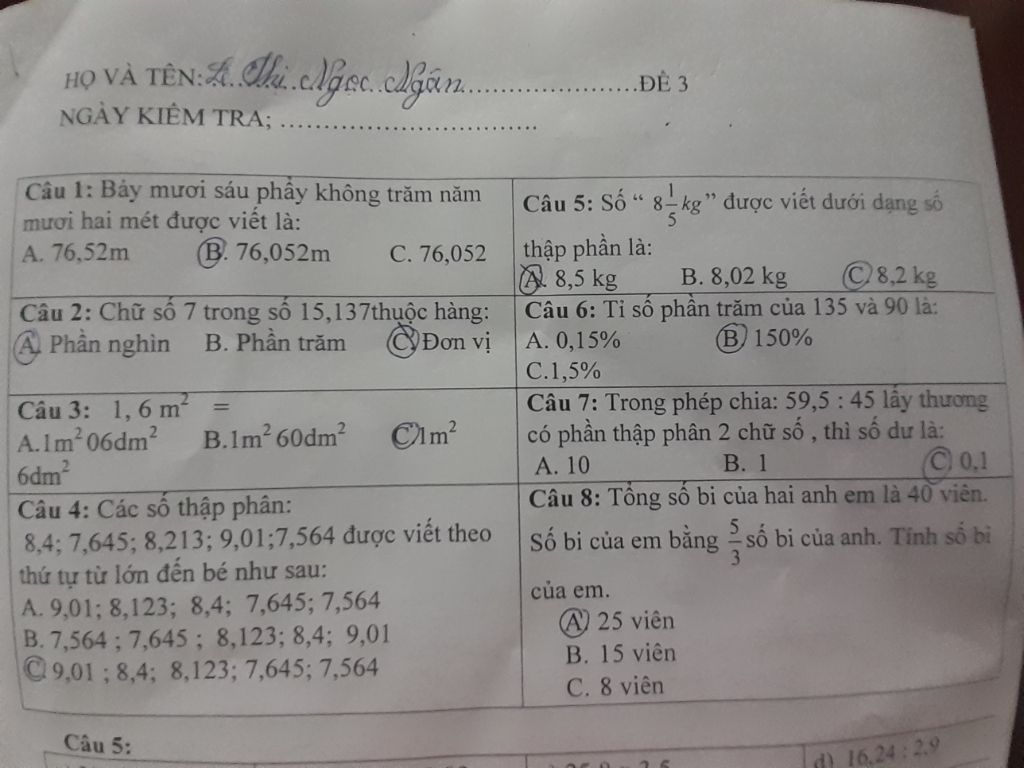 HỌ VÀ TÊN: Lê Thị Ngọc Ngân.....................ĐỀ 3
NGÀY KIỂM TRA; ................................
Câu 1: Bảy mươi sáu phẩy không trăm năm
mươi hai mét được viết là:
A. 76,52m B. 76,052m C. 76,052
Câu 2: Chữ số 7 trong số 15,137thuộc hàng:
A. Phần nghìn B. Phần trăm C. Đơn vị
Câu 3: 1, 6 m² =
A.1m² 06dm² B.1m² 60dm² C.1m²
6dm²
Câu 4: Các số thập phân:
8,4; 7,645; 8,213; 9,01;7,564 được viết theo
thứ tự từ lớn đến bé như sau:
A. 9,01; 8,123; 8,4; 7,645; 7,564
B. 7,564 ; 7,645 ; 8,123; 8,4; 9,01
C. 9,01 ; 8,4; 8,123; 7,645; 7,564
Câu 5: Số “ 8 1/5 kg” được viết dưới dạng số
thập phần là:
A. 8,5 kg B. 8,02 kg C. 8,2 kg
Câu 6: Tỉ số phần trăm của 135 và 90 là:
A. 0,15% B. 150%
C.1,5%
Câu 7: Trong phép chia: 59,5 : 45 lấy thương
có phần thập phân 2 chữ số , thì số dư là:
A. 10 B. 1 C. 0,1
Câu 8: Tổng số bi của hai anh em là 40 viên.
Số bi của em bằng 5/3 số bi của anh. Tính số bi
của em.
A. 25 viên
B. 15 viên
C. 8 viên
Câu 5:
d) 16,24 : 2,9